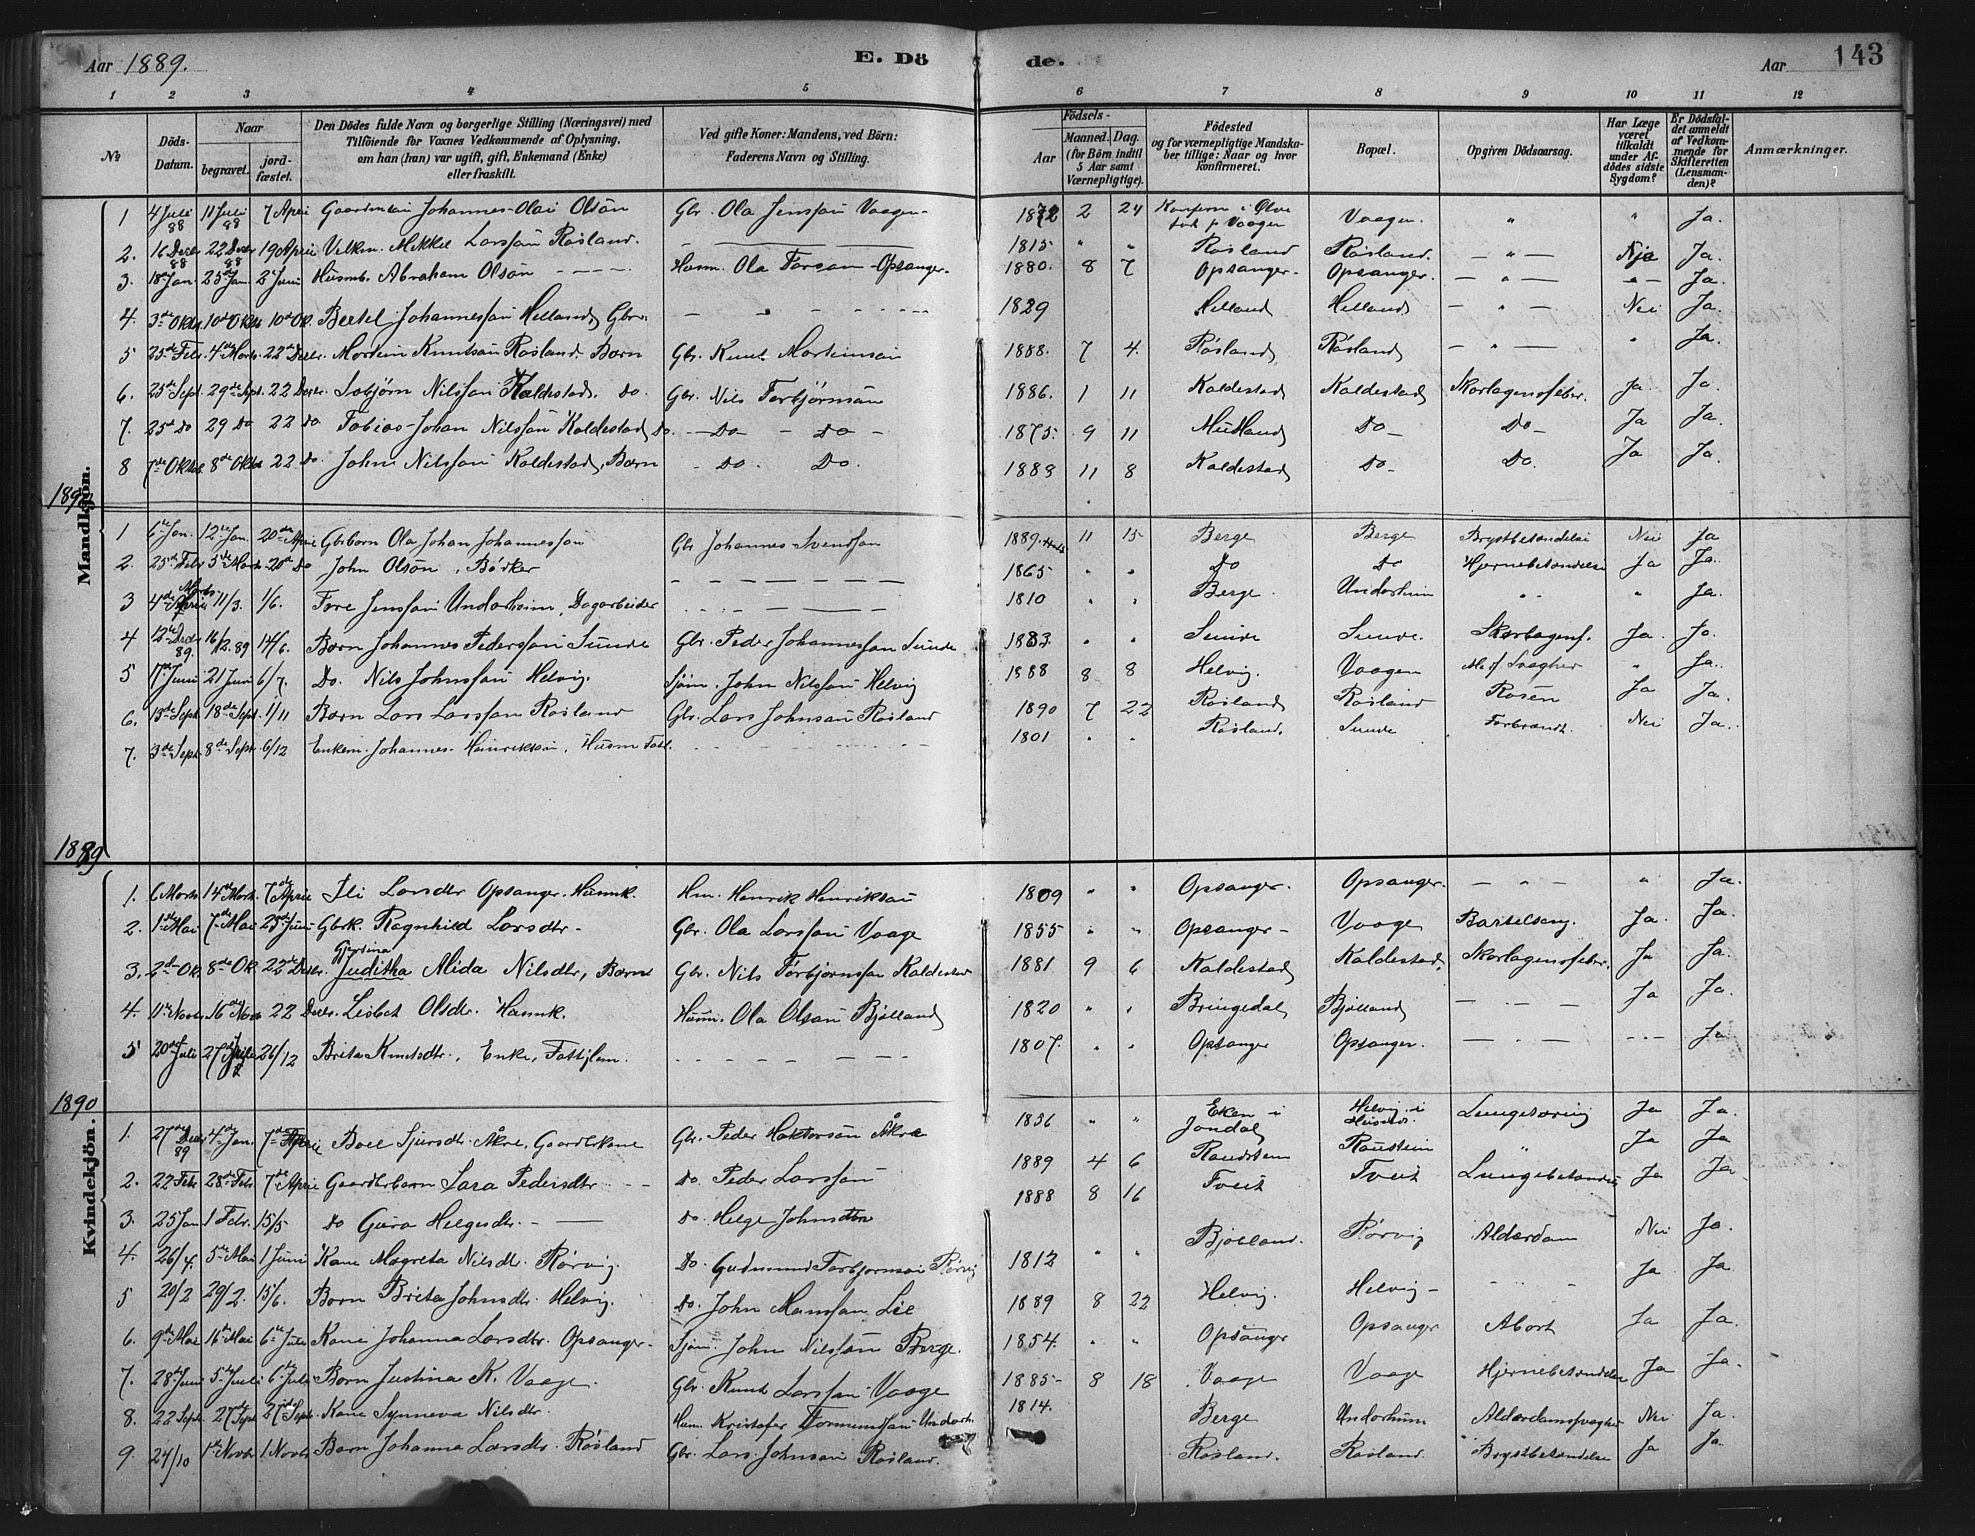 Aar 1889. E. Dö de. Aar 143
1 2 3 4 5 6 7 8 9 10 11 12
№ Döds-Datum. Naar begravet. jord-fæstet. Den Dödes fulde Navn og borgerlige Stilling (Næringsvei) med Tilföiende for Voxnes Vedkommende af Oplysning, om han (hun) var ugift, gift, Enkemand (Enke) eller fraskilt. Ved gifte Koner: Mandens, ved Börn: Faderens Navn og Stilling. Födsels- Aar Maaned. Dag. (for Börn indtil 5 Aar samt Værnepligtige). Födested og for værnepligtige Mandskaber tillige: Naar og hvor konfirmeret. Bopæl. Opgiven Dödsaarsag. Har Læge været tilkaldt under Afdödes sidste Sygdom? Er Dödsfaldet anmeldt af Vedkommende for Skifteretten (Lensmanden)? Anmærkninger.
Mandkjön.
1 4 Juli 88 11 Juli 88 7 April Gaardman Johannes Olai Olsön Gbr. Ola Jensson Vaagen 1872 2 24 Konferm i Ølve Vaagen " " Ja.
2. 16 Decbr 88 22 Decbr 88 19 April Mikkel Larsson Røsland. — 1815 " " Røsland Røsland. — " — Ja.
3. 18 Jan 25 Jan 2 Juni Husmb. Abraham Olsön - - - - Husm. Ola Opsanger. 1880. 8 7 Opsanger - Opsanger. — " — Ja.
4. 3de Oktbr 10de Oktbr 10de Ok. Bertel Johannesson Helland, Gbr. — " - - - 1829 Helland Helland — " — Nei Ja.
5 25de Febr 4de Marts 22de Decbr. Martein Knutsön Røsland. Barn Gbr. Knut Marteinson 1888. 7 4. Røsland Røsland — " — " Ja.
6. 25de Sept 29de Sept. 22 Decbr. Nilsson Kaldestad. Do. Gbr. Nils Torbjörnsön 1886. 1 11 Kaldestad Kaldestad Skarlagensfeber. Ja Ja.
7. 25de Do 29 Do 22 Do Tobias Johan Nilsson Kaldestad Do. — Do — Do — 1875. 9 11 Do — Do — Ja Ja.
8 7de Oktbr 8de Oktbr 22. Do John Nilsson Kaldestad, Barn - Do. Do. 1883 11 8 Kaldestad Do — Do. Ja Ja.
1890
1 6te Jan. 12te Jan. 20de April Gbrbarn Ola Johan Johannesson Gbr Johannes Svendson 1889. 11 15 Berge Berge Brystbetændelse Nei Ja
2. 25de Febr 5de Marts 20de Do John Olsön, Bödker — — — 1865 " " Do Do Hjernebetændelse Ja Ja.
3 4de Marts 11/3. 1/6. Tore Jensson Underheim, Dagarbeider - - - 1810 " " Berge. Underheim " " Ja.
4 12 Decbr 89. 16/2.89 14/6. Barn Johannes Pedersson Sunde Gbr. Peder Johannesson Sunde 1883. " " Sunde Sunde. Skarlagensf. Ja. Ja.
5 17 Juni 21 Juni 6/7 Do. Nils Johnsson Helvig. Sjöm. John Nilsson Helvig 1888 8 8 Helvig. Vaagen Svaghed " Ja.
6. 13de Sept 18de Sept. 1/11 Barn Lars Larsson Røsland Gbr. Lars Johnsön Røsland 1890 7 22 Røsland Røsland Rosen Ja Ja.
7. 3de Sept. 8de Sept. 6/12 Enkem. Johannes Heinriksön, Husm - - - 1801 " " Røsland. Sunde Forbrændt. Nei Ja.
1889
Kvindekjön.
1. 6 Marts 14de Marts 7de April Larsdtr Opsanger, Husmk. Hm. Henrik Henriksön 1809 " " Opsanger. Opsanger. — " — " Ja.
2. 1ste Mai 7de Mai 23de Juni Gbrk. Ragnhild Larsdtr - Gbr. Ola Larsson Vaage 1855 " " Opsanger - Vaage Barselseng. Ja. Ja.
3. 2de Ok. 8de Ok. 22de Decbr. Juditha Alida Nilsdtr, Barn Gbr. Nils Torbjörnson Kaldestad 1881 9 6 Kaldestad Kaldestad. Skarlagensfeber. Ja Ja.
4. 11te Novbr 16de Novbr 22 Decbr. Lisbet Olsdr. Husmk. Husm. Ola Olsön Bjölland 1820 " " Bringedal Bjölland — . — Ja Ja.
5 20de Juli 27de Juli 26/12 Brita Knutsdtr., Enke, Fattiglem. — — — 1807. " " Opsanger Opsanger. — . — - . - Ja.
1890
1. 27de Decbr 89 4de Jan. 7de April Boel Sjursdtr Åkre, Gaardbrkone Gbr. Peder Haktorsön Åkre 1836 " " Eken i Jondal Helvig i Lungetæring Ja Ja.
2. 22 Febr 28de Febr. 7de April Gaardbrbarn Sara Pedersdtr - - - Do. Peder Larsson 1889 4 6 " Ja Ja
3. 25 Jan 1 Febr. 15/5 Do Gura Helgesdtr. - — Do. Helge Johnsön 1888 8 16 Tveit Tveit Lungebetændelse Ja Ja.
4. 26/4. 5te Mai 1 Juni Kone Magreta Nilsdtr. Rørvig. Do. Gudmund Torbjörnsön Rørvig 1812 " " Bjölland. Rørvig Alderdom Nei Ja.
5 20/2 29/2. 15/6. Barn Brita Johnsdtr. Helvig. Do. John Monsson Lie 1889 8 22 Helvig. Helvig - Ja Ja.
6. 9de Mai 16de Mai 6te Juli Kone Johanna Larsdtr. Opsanger - Sjöm. John Nilssön Berge. 1854. " " Opsanger Opsanger Abort Ja Ja.
7. 28de Juni 5te Juli 6te Juli Barn Justina K. Vaage. Gbr Knut Larsson Vaage 1885 - 8 18 Vaage Vaage Hjernebetændelse Ja Ja.
8. 22 Sept. 27de Sept 27de Sept. Kone Synneva Nilsdtr. Husm. Kristofer Underh. 1814. Berge Underheim Alderdomssvaghed Nei Ja.
9. 24/10 1ste Novbr 1 Novbr Barn Johanna Larsdtr. Røsland Gbr. Lars Johnsön Røsland. Røsland. Røsland Brystbetændelse Ja Ja.